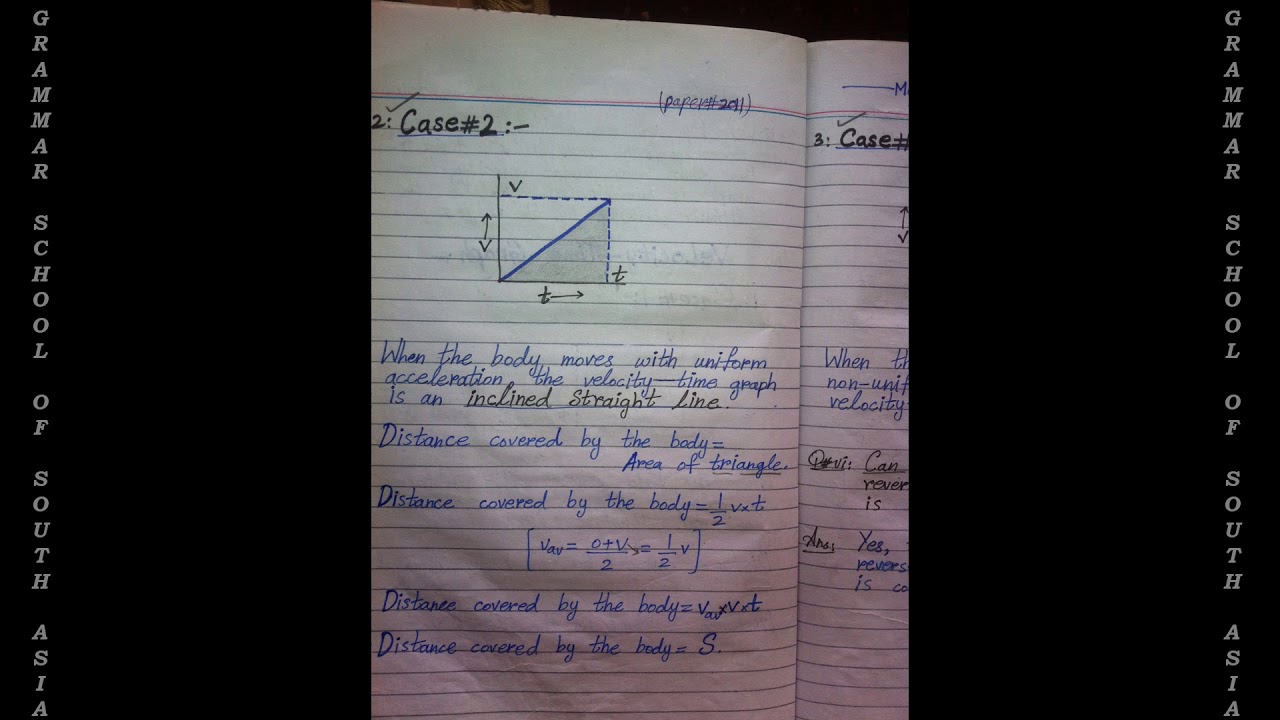 GRAMMAR SCHOOL OF SOUTH ASIA
(paper#2011)
2: Case#2:-
V
V
t
t
When the body moves with uniform
acceleration, the velocity-time graph
is an inclined straight line.
Distance covered by the body=
Area of triangle.
Distance covered by the body=1/2 v×t
[Vav = 0+V/2 = 1/2 v]
Distance covered by the body=Vav×v×t
Distance covered by the body= S.
3: Case#
V
When th
non-unif
velocity-
Q#vi: Can
rever
is
Ans: Yes,
revers
is co
GRAMMAR SCHOOL OF SOUTH ASIA